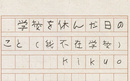 学校を休んだ日の
こと(我不在学校)
Kikuo